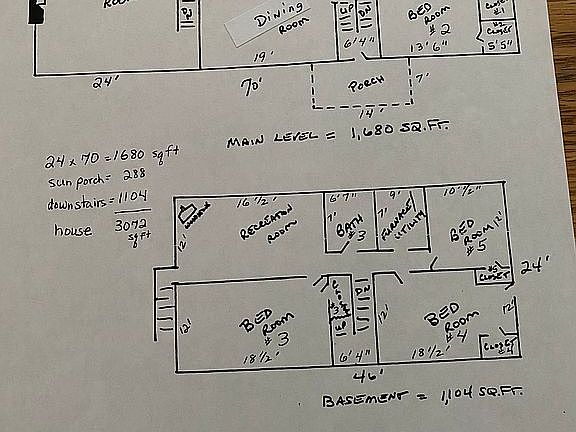 ROOM
DN
Dining
ROOM
UP
DN
BED
ROOM
# 2
CLOSET
#1
#2
CLOSET
5'5"
24'
19'
6'4"
13'6"
70'
PORCH
7'
14'
MAIN LEVEL = 1,680 SQ.FT.
24 x 70 = 1680 sq ft
sun porch = 288
downstairs = 1104
house 3072
sq ft
16 1/2'
6'7"
9'
10 1/2"
12'
RECREATON
ROOM
7'
BATH
# 3
7'
FURNACE
UTILITY
BED
ROOM
# 5
11'
#5
CLOSET
24'
12'
BED
ROOM
# 3
18 1/2'
CLOSET
#3
UP
DN
6'4"
12'
BED
ROOM
# 4
18 1/2'
12'
CLOSET
#4
46'
BASEMENT = 1,104 SQ.FT.